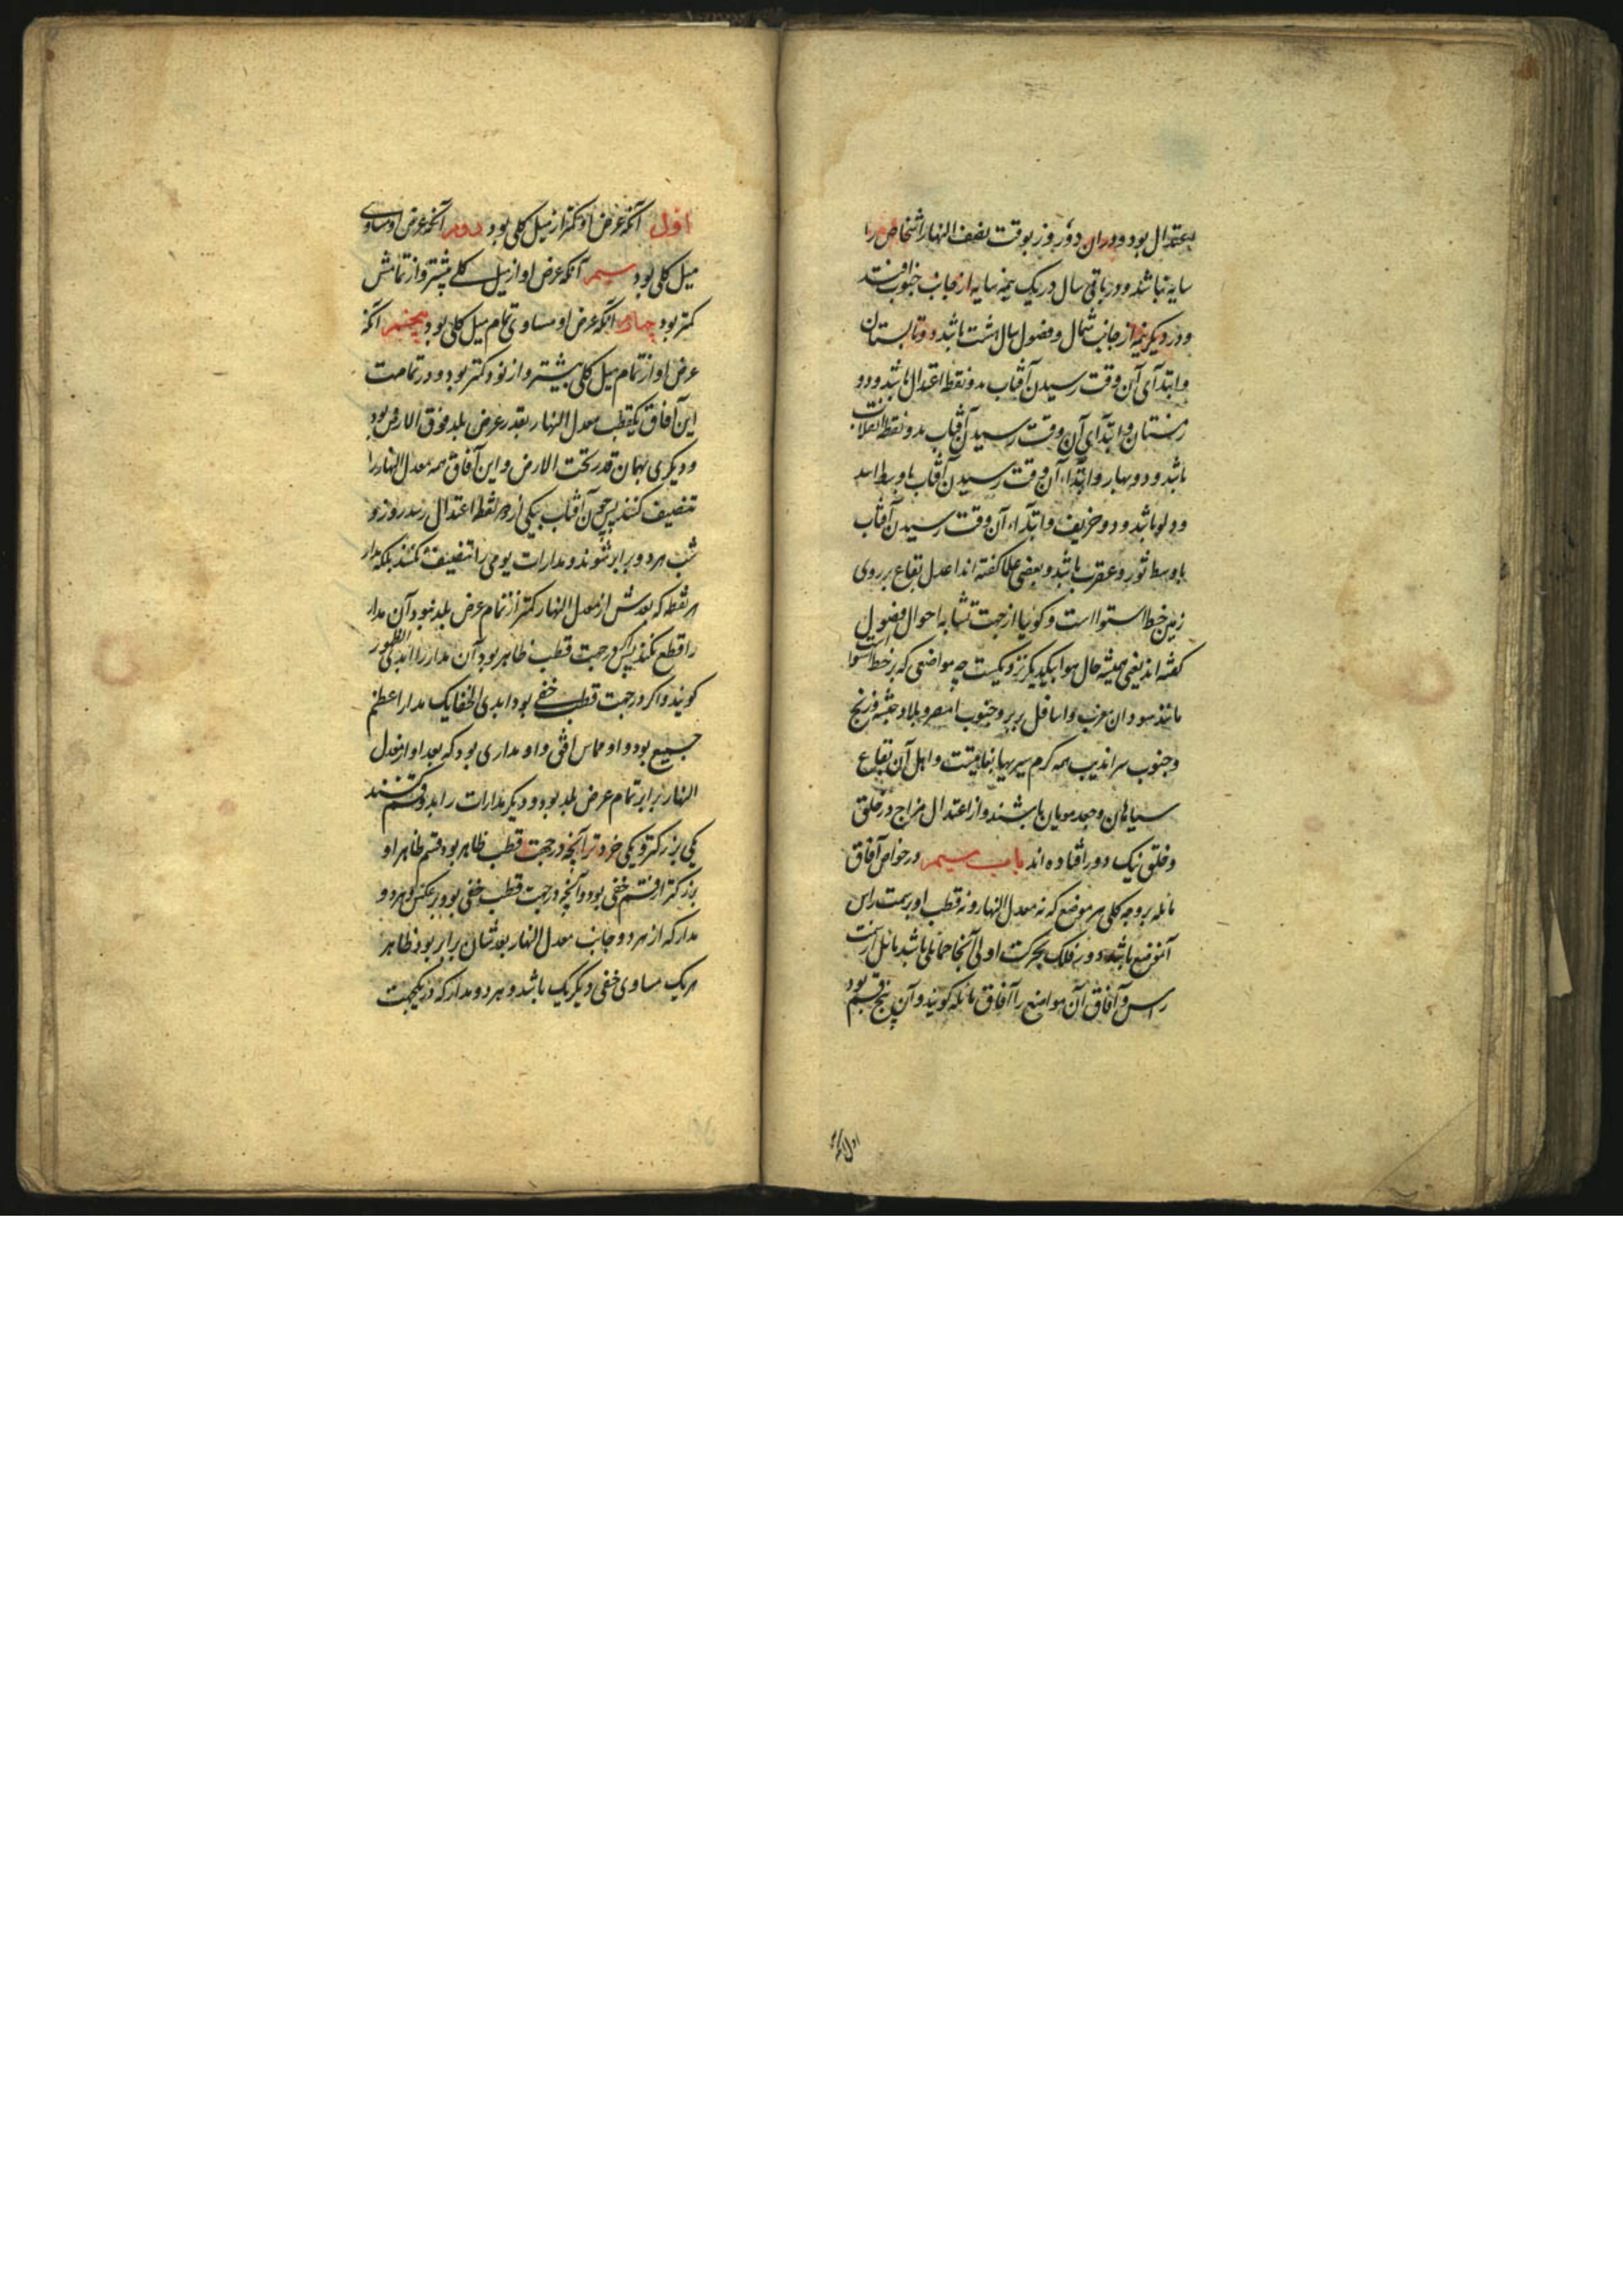 اعتدال بود و در ان دو روز بوقت نصف النهار اشخاص را
سایه نباشد و در باقی سال در یک نیمه سایه از جانب جنوب افتد
و در دیکر نیمه از جانب شمال و فصول سال هشت باشد دو تابستان
و ابتدآی آن وقت رسیدن آفتاب بدو نقطه اعتدال باشد و دو
زمستان و ابتدآی آن وقت رسیدن آفتاب بدو نقطه انقلاب
باشد و دو بهار و ابتداء آن وقت رسیدن آفتاب باوسط اسد
و دلو باشد و دو خریف و ابتدآء آن وقت رسیدن آفتاب
باوسط ثور و عقرب باشد و بعضی علما کفته اند اعدل بقاع بر روی
زمین خط استوا است و کوئیا از جهت تشابه احوال فصول
کفته اند یعنی همیشه حال هوا بیکدیکر نزدیکست چه مواضعی که بر خط استوا
مانند سودان مغرب و اسافل بربر و جنوب مصر و بلاد حبشه و زنج
و جنوب سراندیب همه کرم سیریها بغایتست و اهل آن بقاع
سیاهان و جعد مویان باشند و از اعتدال مزاج در خلق
و خلق نیک دور افتاده اند باب سیم در خواص آفاق
مائله بر وجه کلی هر موضع که نه معدل النهار و نه قطب او بر سمت راس
آنموضع باشد دور فلک بحرکت اولی آنجا حمایلی باشد مائل از سمت
راس و آفاق آن مواضع را آفاق مائله کویند و آن پنج قسم بود
اول آنکه
اول آنکه عرض او کمتر از میل کلی بود دوم آنکه عرض او مساوی
میل کلی بود سیم آنکه عرض او از میل کلی بیشتر و از تمامش
کمتر بود چهارم آنکه عرض او مساوی تمام میل کلی بود پنجم آنکه
عرض او از تمام میل کلی بیشتر و از نود کمتر بود و در تمامت
این آفاق یکقطب معدل النهار بقدر عرض بلد فوق الارض بود
و دیکری بهمان قدر تحت الارض و این آفاق همه معدل النهار را
تنصیف کنند پس چون آفتاب بیکی از دو نقطه اعتدال رسد روز و
شب هر دو برابر شوند و مدارات یومی را تنصیف نکنند بلکه مدار
هر نقطه که بعدش از معدل النهار کمتر از تمام عرض بلد نبود آن مدار
را قطع نکند پس اکر در جهت قطب ظاهر بود آن مدار را ابدی الظهور
کویند و اکر در جهت قطب خفی بود ابدی الخفا یک مدار اعظم
جمیع بود و او مماس افق و او مداری بود که بعد او از معدل
النهار برابر تمام عرض بلد بود و دیکر مدارات را بدو قسم کنند
یکی بزرکتر و یکی خردتر آنچه در جهت قطب ظاهر بود قسم ظاهر او
بزرکتر از قسم خفی بود و آنچه در جهت قطب خفی بود بر عکس و هر دو
مدار که از هر دو جانب معدل النهار بعدشان برابر بود ظاهر
هر یک مساوی خفی دیکر یک باشد و هر دو مدار که در یکجهت